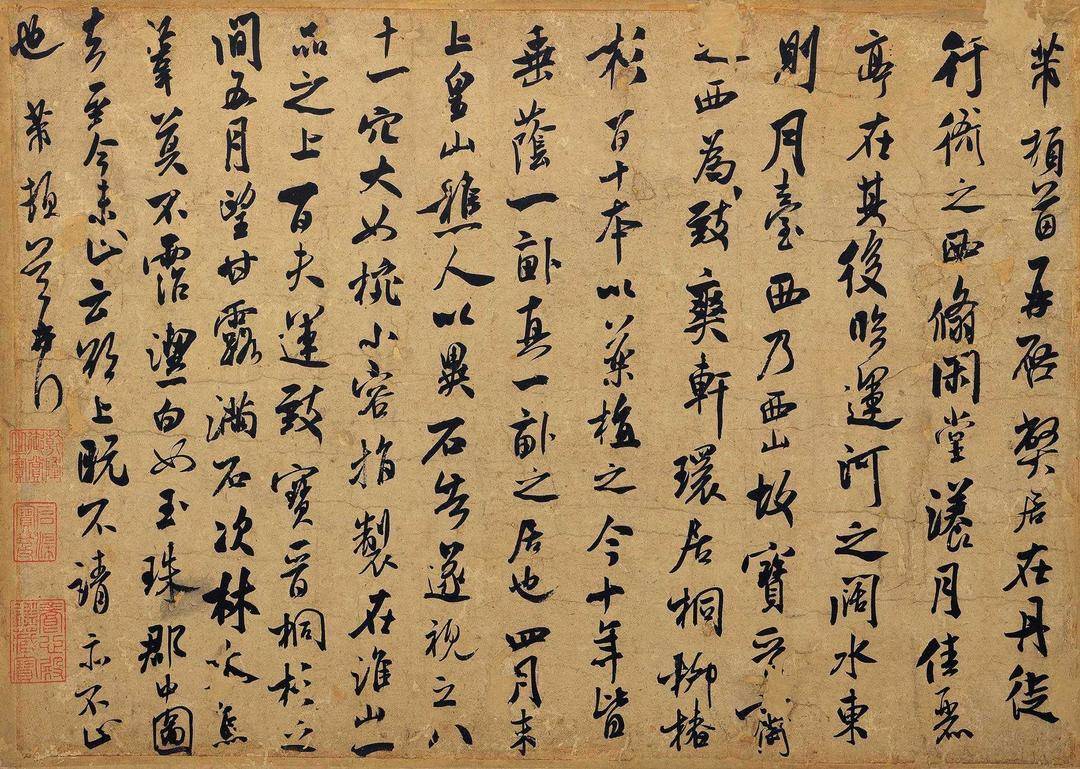 芾頓首再啟弊居在丹徒
行衙之西翛閑堂漾月佳麗
亭在其後臨運河之闊水東
則月臺西乃西山故寶晉齋
之西為致爽軒環居桐柳椿
杉百十本以藥植之今十年皆
垂蔭一畝真一畝之居也四月末
上皇山樵人以異石告遂視之八
十一穴大如椀小容指製在淮山一
品之上百夫運致寶晉桐杉之
間五月望甘露滿石次林木焉
莘莫不霑潔白如玉珠郡中圖
去至今未止云欲上既不請亦不止
也芾頓首再拜
乾隆御覽之寶
石渠寶笈
養心殿鑑藏寶